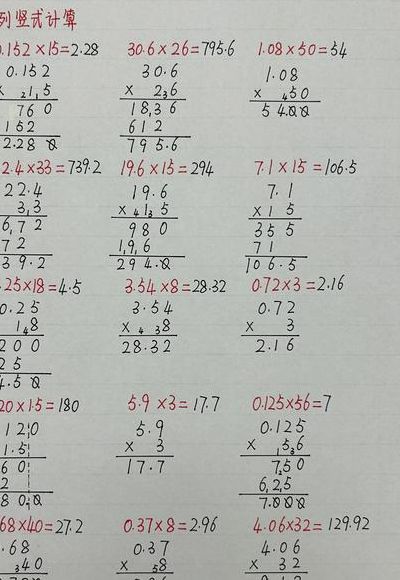 列竖式计算
0.152×15=2.28 30.6×26=795.6 1.08×50=54
0.152 30.6 1.08
× 15 × 26 × 50
760 1836 54.00
152 612
2.280 795.6
2.4×33=739.2 19.6×15=294 7.1×15=106.5
22.4 19.6 7.1
33 × 15 ×15
672 980 355
72 196 71
39.2 294.0 106.5
.25×18=4.5 3.54×8=28.32 0.72×3=2.16
0.25 3.54 0.72
18 × 8 × 3
200 28.32 2.16
25
4.50
20×1.5=180 5.9×3=17.7 0.125×56=7
120 5.9 0.125
1.5 × 3 × 56
60 17.7 750
2 625
80.0 7.000
68×40=27.2 0.37×8=2.96 4.06×32=129.92
.68 0.37 4.06
40 × 8 × 32